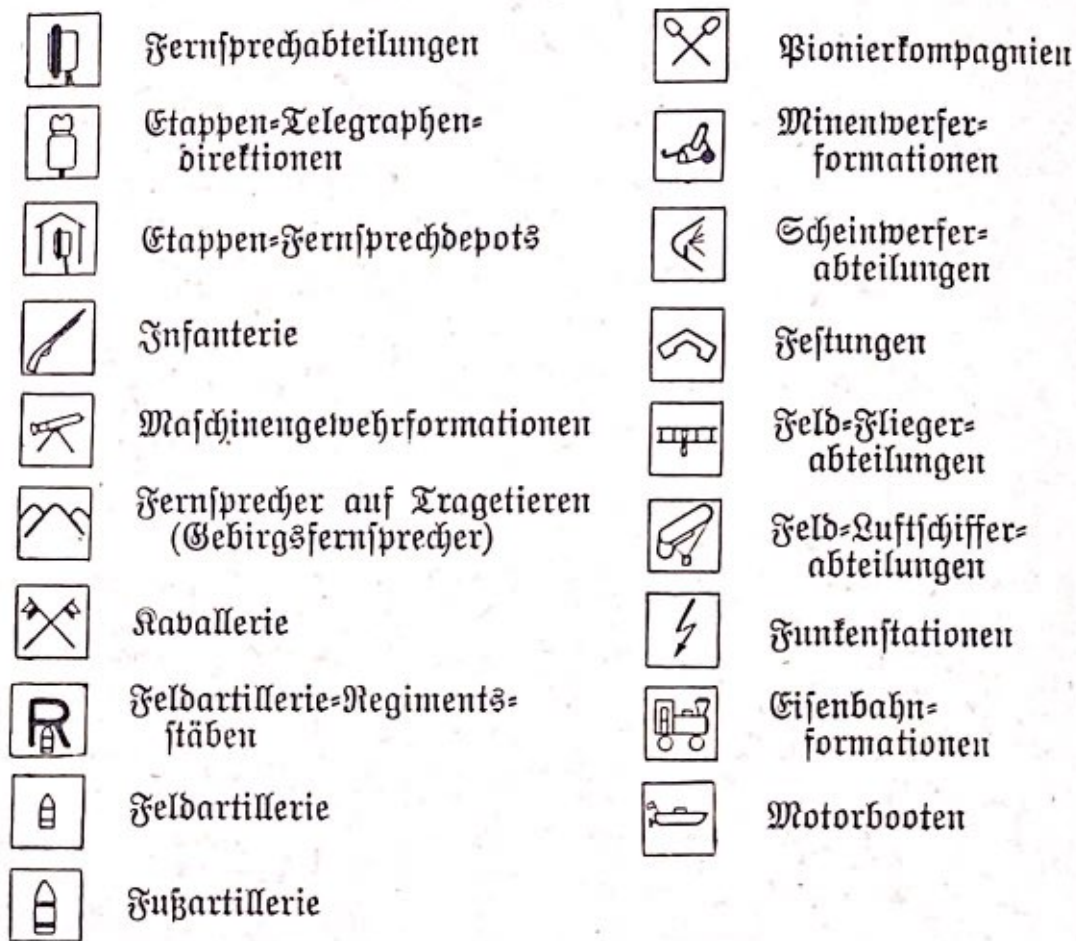 Fernsprechabteilungen
Etappen-Telegraphen-
direktionen
Etappen-Fernsprechdepots
Infanterie
Maschinengewehrformationen
Fernsprecher auf Tragetieren
(Gebirgsfernsprecher)
Kavallerie
R
Feldartillerie-Regiments-
stäben
Feldartillerie
Fußartillerie
Pionierkompagnien
Minenwerfer-
formationen
Scheinwerfer-
abteilungen
Festungen
Feld-Flieger-
abteilungen
Feld-Luftschiffer-
abteilungen
Funkenstationen
Eisenbahn-
formationen
Motorbooten